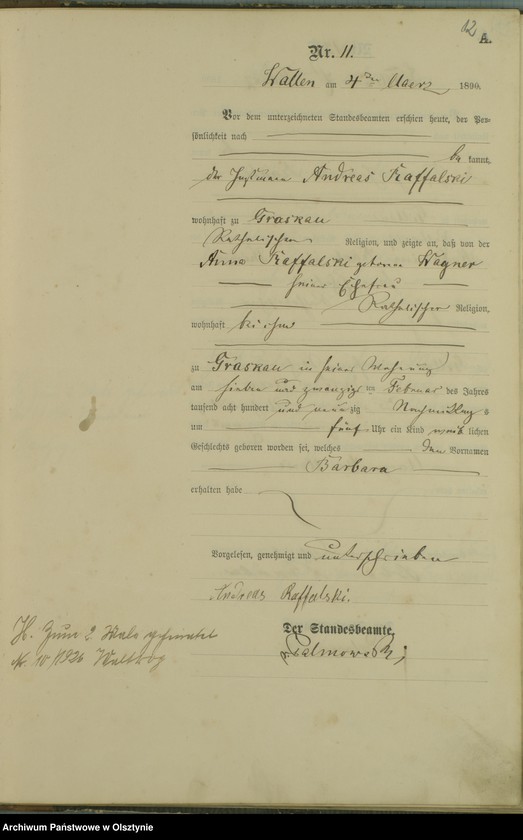 12
A.
Nr. 11.
Wallen am 4ten Maerz 1890.
Vor dem unterzeichneten Standesbeamten erschien heute, der Per-
sönlichkeit nach
be kannt,
der Instmann Andreas Raffalski
wohnhaft zu Graskau
Katholischer Religion, und zeigte an, daß von der
Anna Raffalski geborene Wagner
seiner Ehefrau
Katholischer Religion,
wohnhaft bei ihm
zu Graskau in seiner Wohnung
am sieben und zwanzigsten Februar des Jahres
tausend acht hundert und neunzig Nachmittags
um fünf Uhr ein Kind weib lichen
Geschlechts geboren worden sei, welches den Vornamen
Barbara
erhalten habe
Vorgelesen, genehmigt und unterschrieben
Andreas Raffalski.
Der Standesbeamte,
v. Palmowski
H. Zum 2 Male geheiratet
Nr. 10/1926
Archiwum Państwowe w Olsztynie